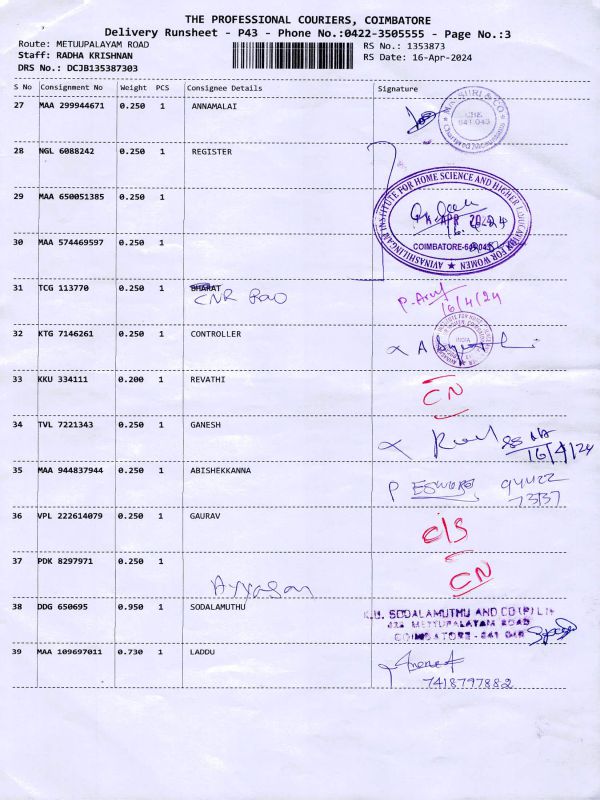 THE PROFESSIONAL COURIERS, COIMBATORE
Delivery Runsheet - P43 - Phone No.:0422-3505555 - Page No.:3
Route: METUUPALAYAM ROAD
RS No.: 1353873
Staff: RADHA KRISHNAN
RS Date: 16-Apr-2024
DRS No.: DCJB135387303
S No Consignment No Weight PCS Consignee Details Signature
27 MAA 299944671 0.250 1 ANNAMALAI
28 NGL 6088242 0.250 1 REGISTER
29 MAA 650051385 0.250 1
AVINASHILINGAM INSTITUTE FOR HOME SCIENCE AND HIGHER EDUCATION FOR WOMEN
30 MAA 574469597 0.250 1
COIMBATORE-641043
31 TCG 113770 0.250 1 BHARAT
CNR Rao
16/4/24
32 KTG 7146261 0.250 1 CONTROLLER
INDIA
33 KKU 334111 0.200 1 REVATHI
CN
34 TVL 7221343 0.250 1 GANESH
16/4/24
35 MAA 944837944 0.250 1 ABISHEKKANNA
P ESWARI 94422
73737
36 VPL 222614079 0.250 1 GAURAV
C/S
37 PDK 8297971 0.250 1
CN
38 DDG 650695 0.950 1 SODALAMUTHU
SODALAMUTHU AND CO
METTUPALAYAM ROAD
COIMBATORE - 641
39 MAA 109697011 0.730 1 LADDU
7418797882